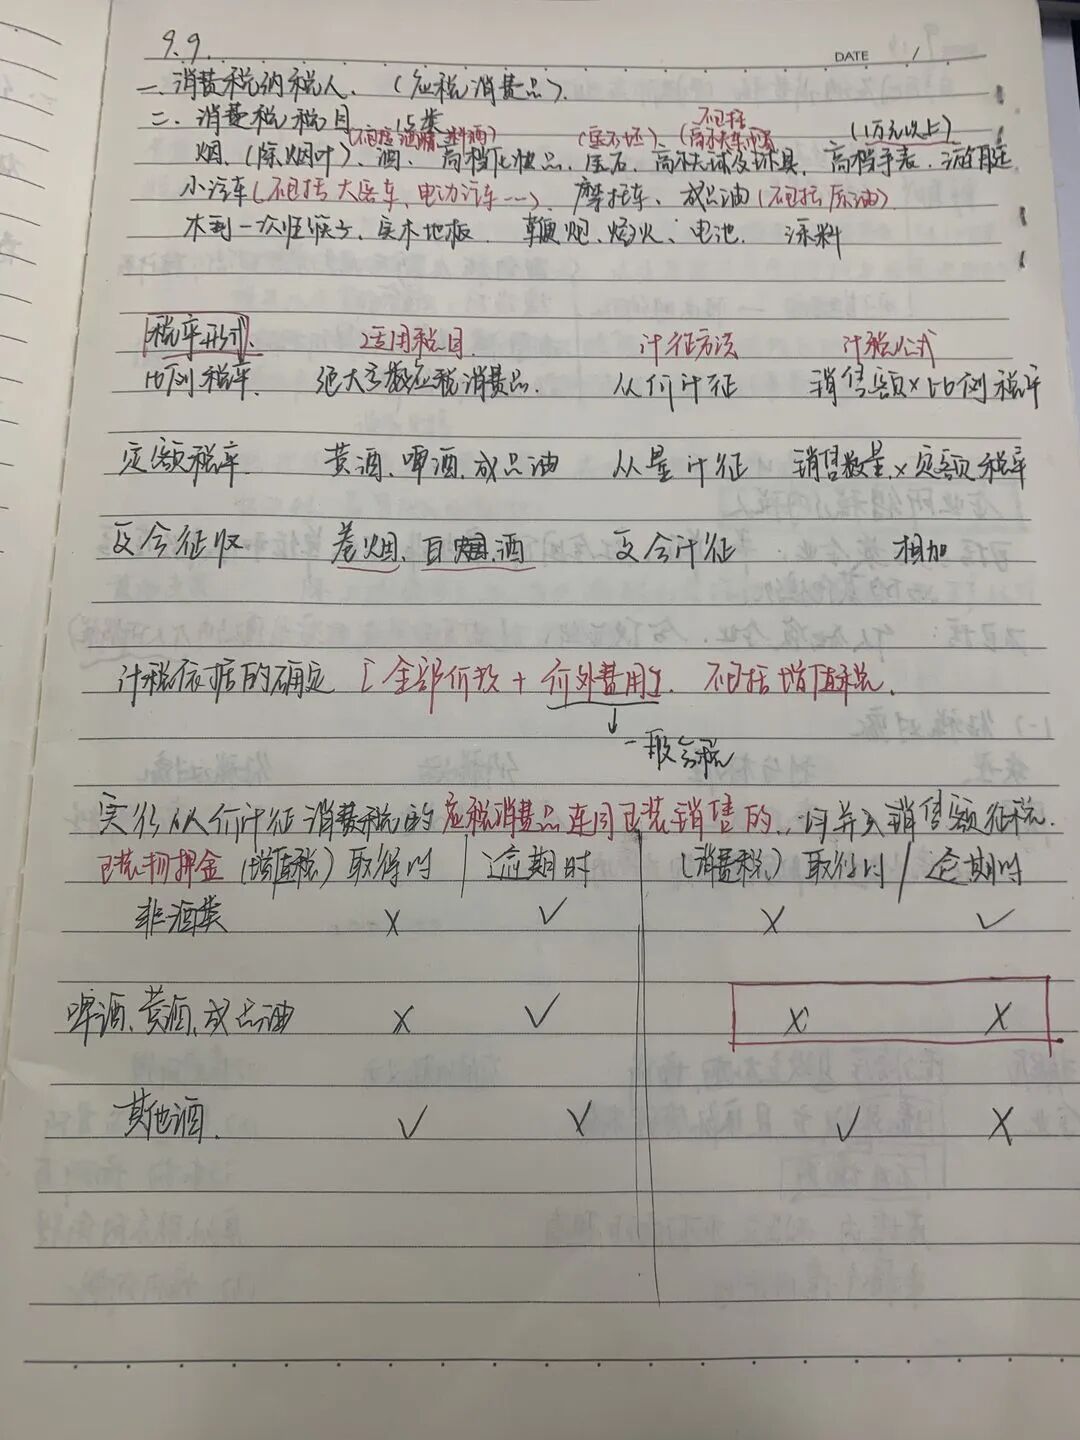 9.9.
DATE /
一、消费税纳税人.（应税消费品）.
二、消费税税目 15类
（不包括酒精、料酒）（宝石坯）（不包括高尔夫车 （1万元以上）
烟、（除烟叶）、酒、高档化妆品、宝石、高尔夫球及球具、高档手表、游艇
小汽车（不包括大客车、电动汽车……）、摩托车、成品油（不包括原油）.
木制一次性筷子、实木地板、鞭炮、焰火、电池、涂料
税率形式. 适用税目. 计征方法 计税公式
比例税率. 绝大多数应税消费品. 从价计征 销售额×比例税率
定额税率 黄酒、啤酒、成品油 从量计征 销售数量×定额税率
复合征收 卷烟、白酒 复合计征 相加
计税依据的确定「全部价款+价外费用」. 不包括增值税.
↓
一般含税
实行从价计征消费税的应税消费品连同包装销售的，均并入销售额征税.
包装物押金（增值税）取得时 | 逾期时 （消费税）取得时 / 逾期时
非酒类 × √ × √
啤酒、黄酒、成品油 × √ × ×
其他酒. √ × √ ×